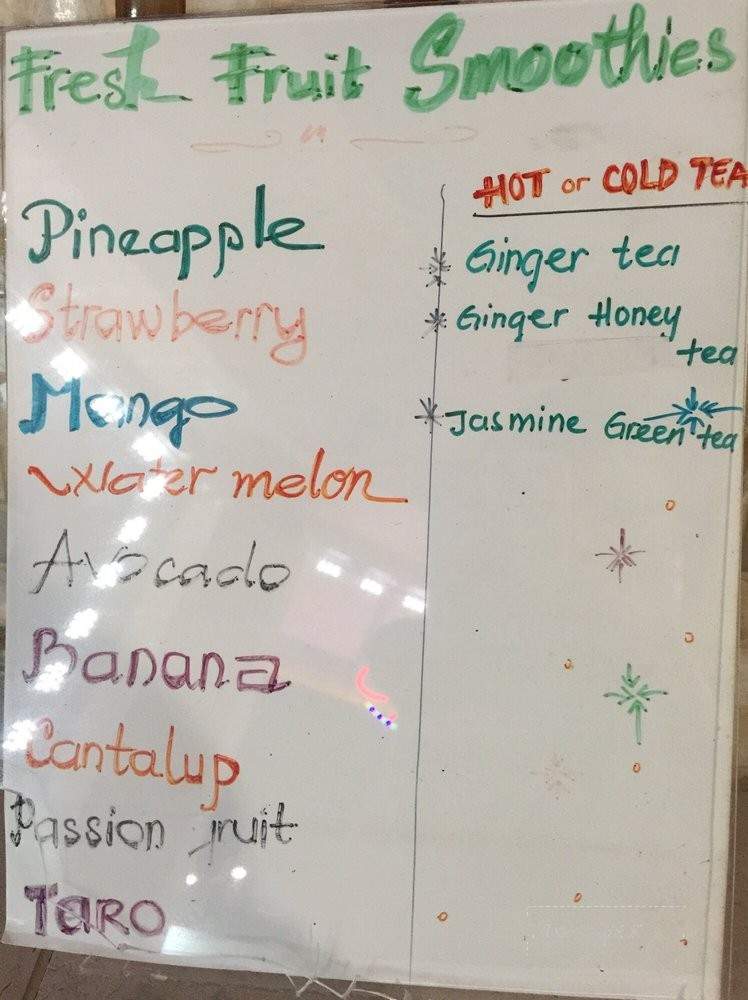 Fresh Fruit Smoothies
Pineapple
Strawberry
Mango
Water melon
Avocado
Banana
Cantalup
Passion fruit
Taro
HOT or COLD TEA
Ginger tea
Ginger Honey
tea
Jasmine Green tea